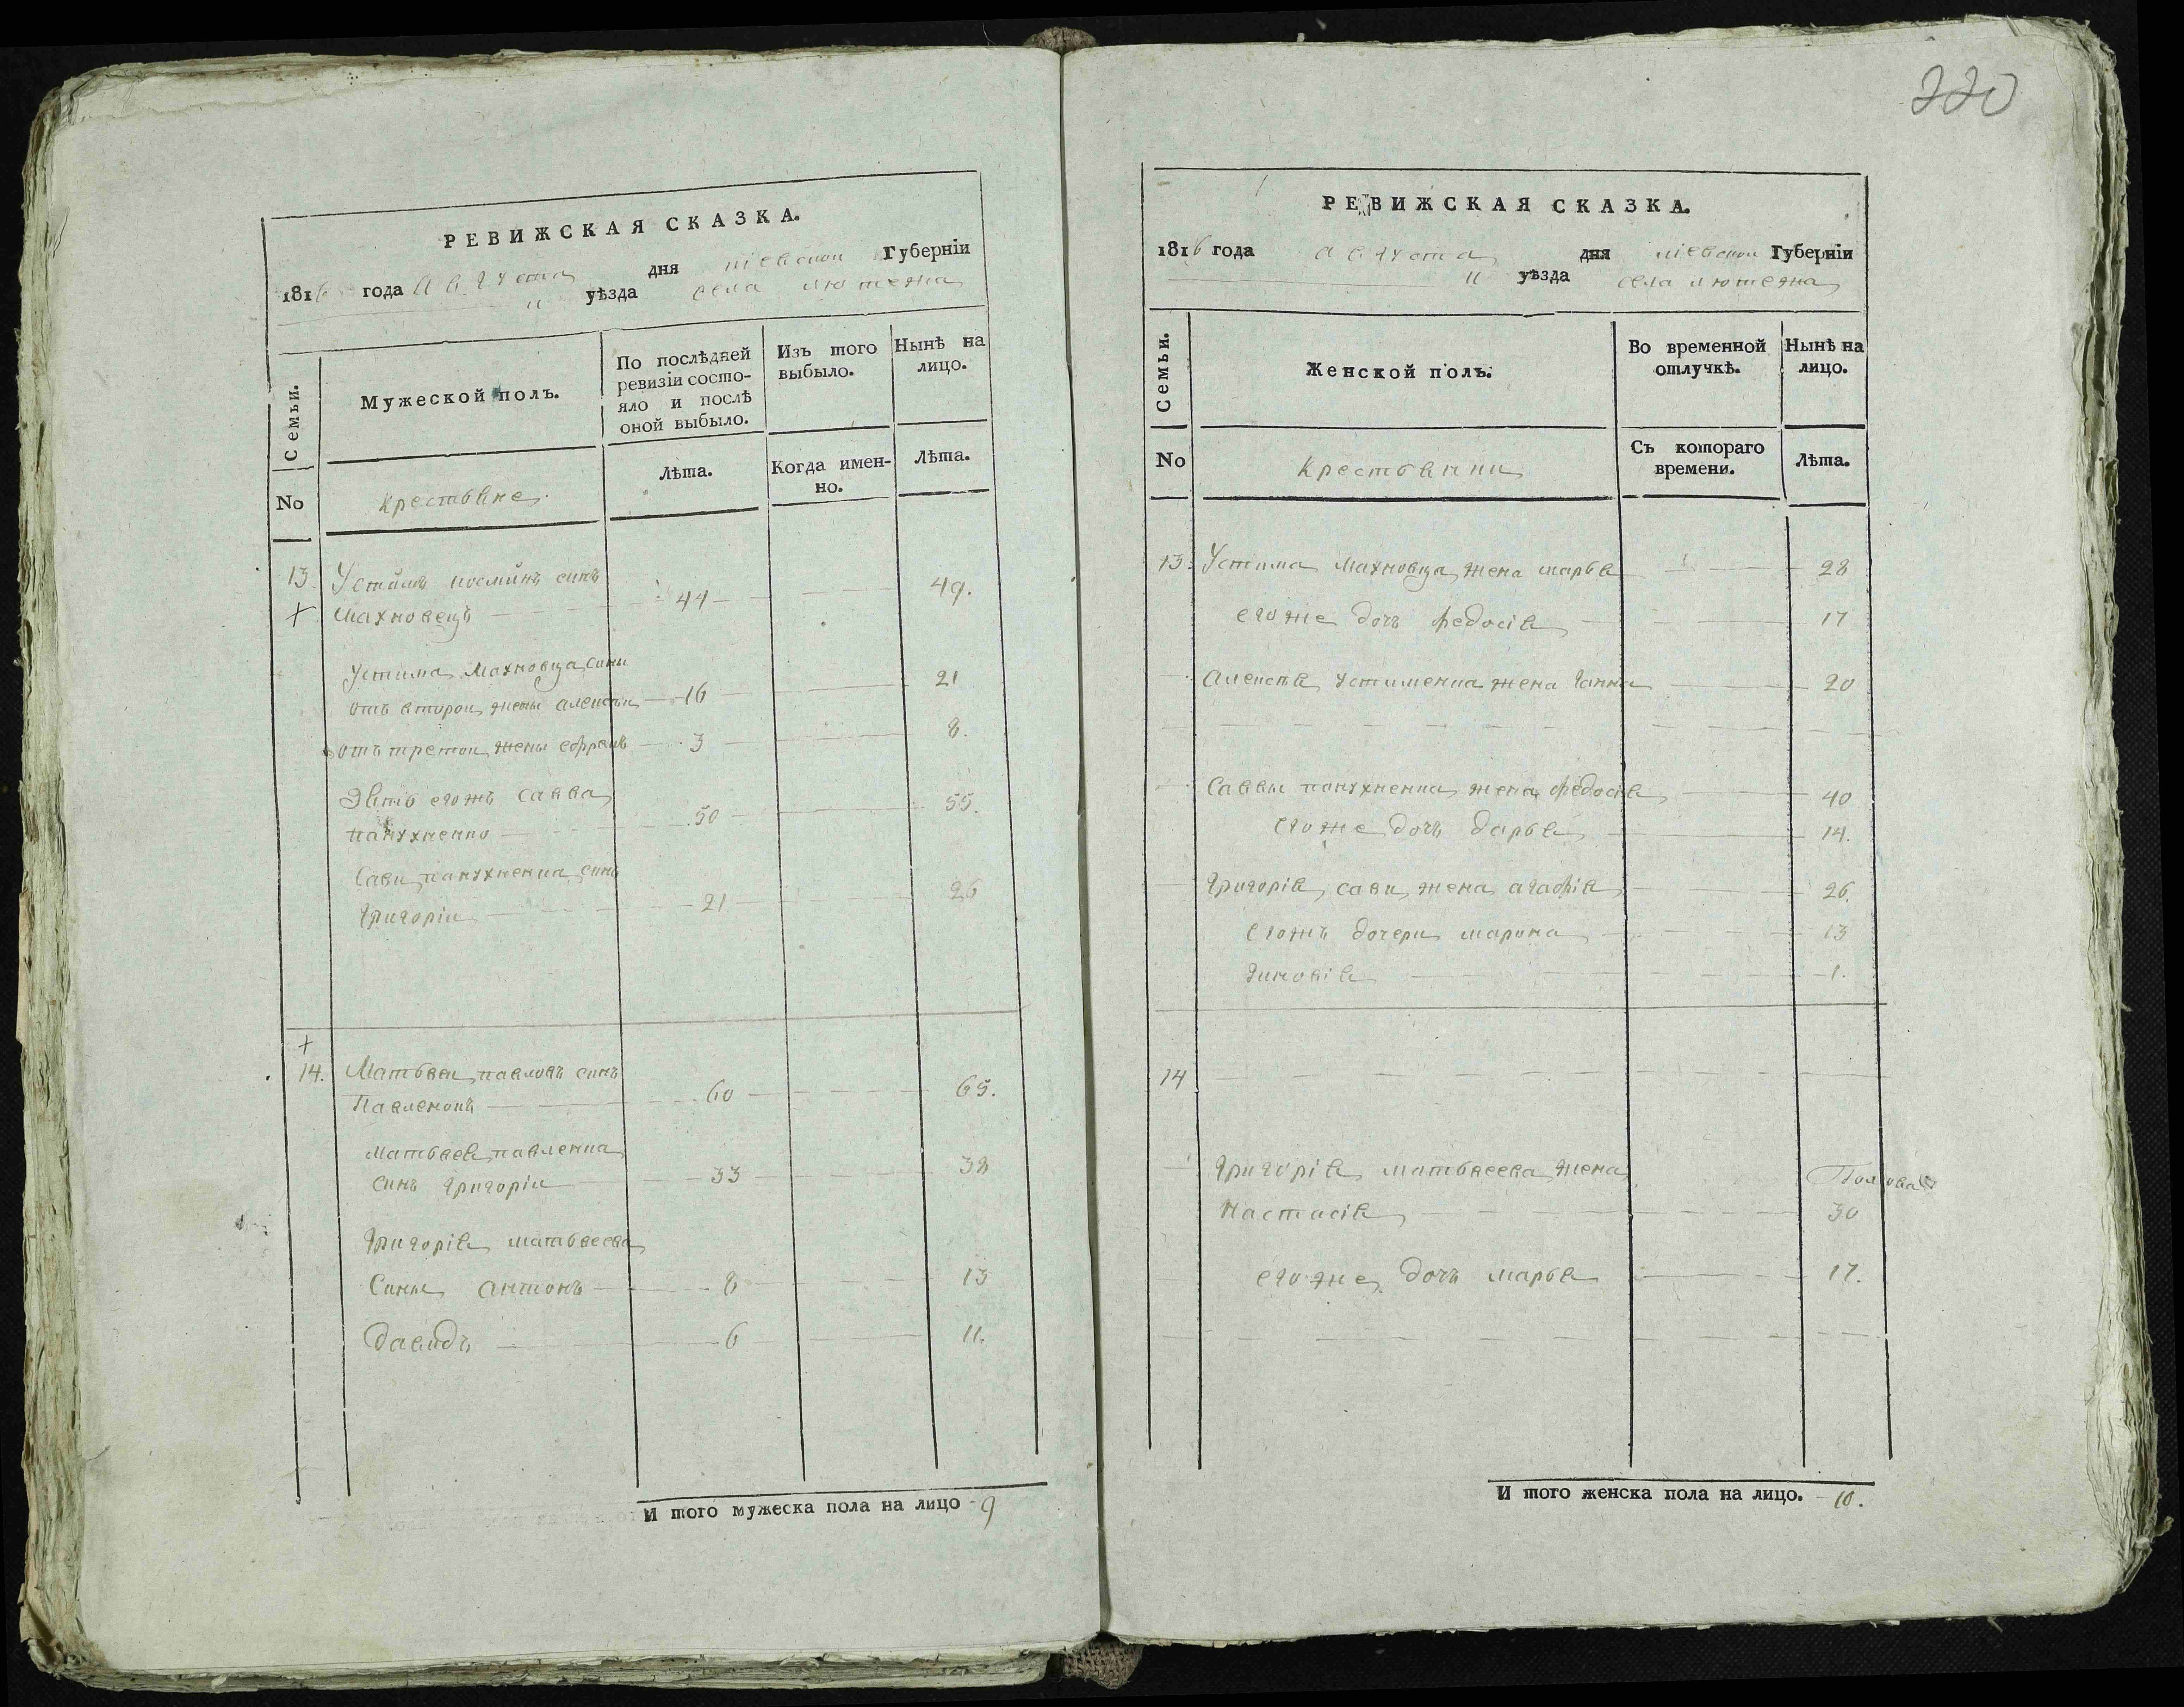 220
РЕВИЖСКАЯ СКАЗКА.
1816 года Августа дня кіевскои Губерніи
уѣзда села лютежа
Семьи.
Мужеской полъ.
По послѣдней ревизіи состо-
яло и послѣ
оной выбыло.
Изъ того
выбыло.
Нынѣ на
лицо.
No
крестьяне
Лѣта.
Когда имен-
но.
Лѣта.
13. Устимъ косминъ синъ
Махновецъ 44 49.
Устима Махновца сини
отъ второи жены алексѣи 16 21
отъ третои жены ефремъ 3 8.
Зять егожъ савва
панухненко 50 55.
Сави панухненка синъ
григоріи 21 26
14. Матвѣи павловъ синъ
Павленокъ 60 65.
Матвѣея павленка
синъ григоріи 33 38
григорія матвѣеева
Сини антонъ 8 13
давидъ 6 11.
И того мужеска пола на лицо 9
РЕВИЖСКАЯ СКАЗКА.
1816 года августа дня кіевскои Губерніи
уѣзда села лютежа
Семьи.
Женской полъ.
Во временной
отлучкѣ.
Нынѣ на
лицо.
No
крестьянки
Съ котораго
времени.
Лѣта.
13. Устима махновца жена марья 28
егоже дочъ федосія 17
алексѣя устименка жена ганна 20
саввы панухненка жена федосія 40
егоже дочъ дарья 14.
григорія сави жена агафія 26.
егожъ дочери марина 13
зиновія 1.
14
григорія матвѣеева жена
настасія 30
егоже дочъ марья 17.
И того женска пола на лицо. 10.